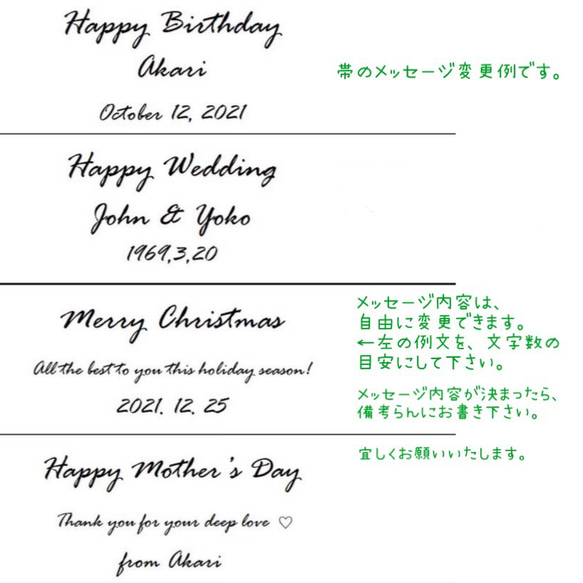 Happy Birthday
Akari
October 12, 2021
帯のメッセージ変更例です。
Happy Wedding
John & Yoko
1969,3,20
Merry Christmas
All the best to you this holiday season!
2021. 12. 25
メッセージ内容は、
自由に変更できます。
←左の例文を、文字数の
目安にして下さい。
メッセージ内容が決まったら、
備考らんにお書き下さい。
宜しくお願いいたします。
Happy Mother's Day
Thank you for your deep love ♡
from Akari